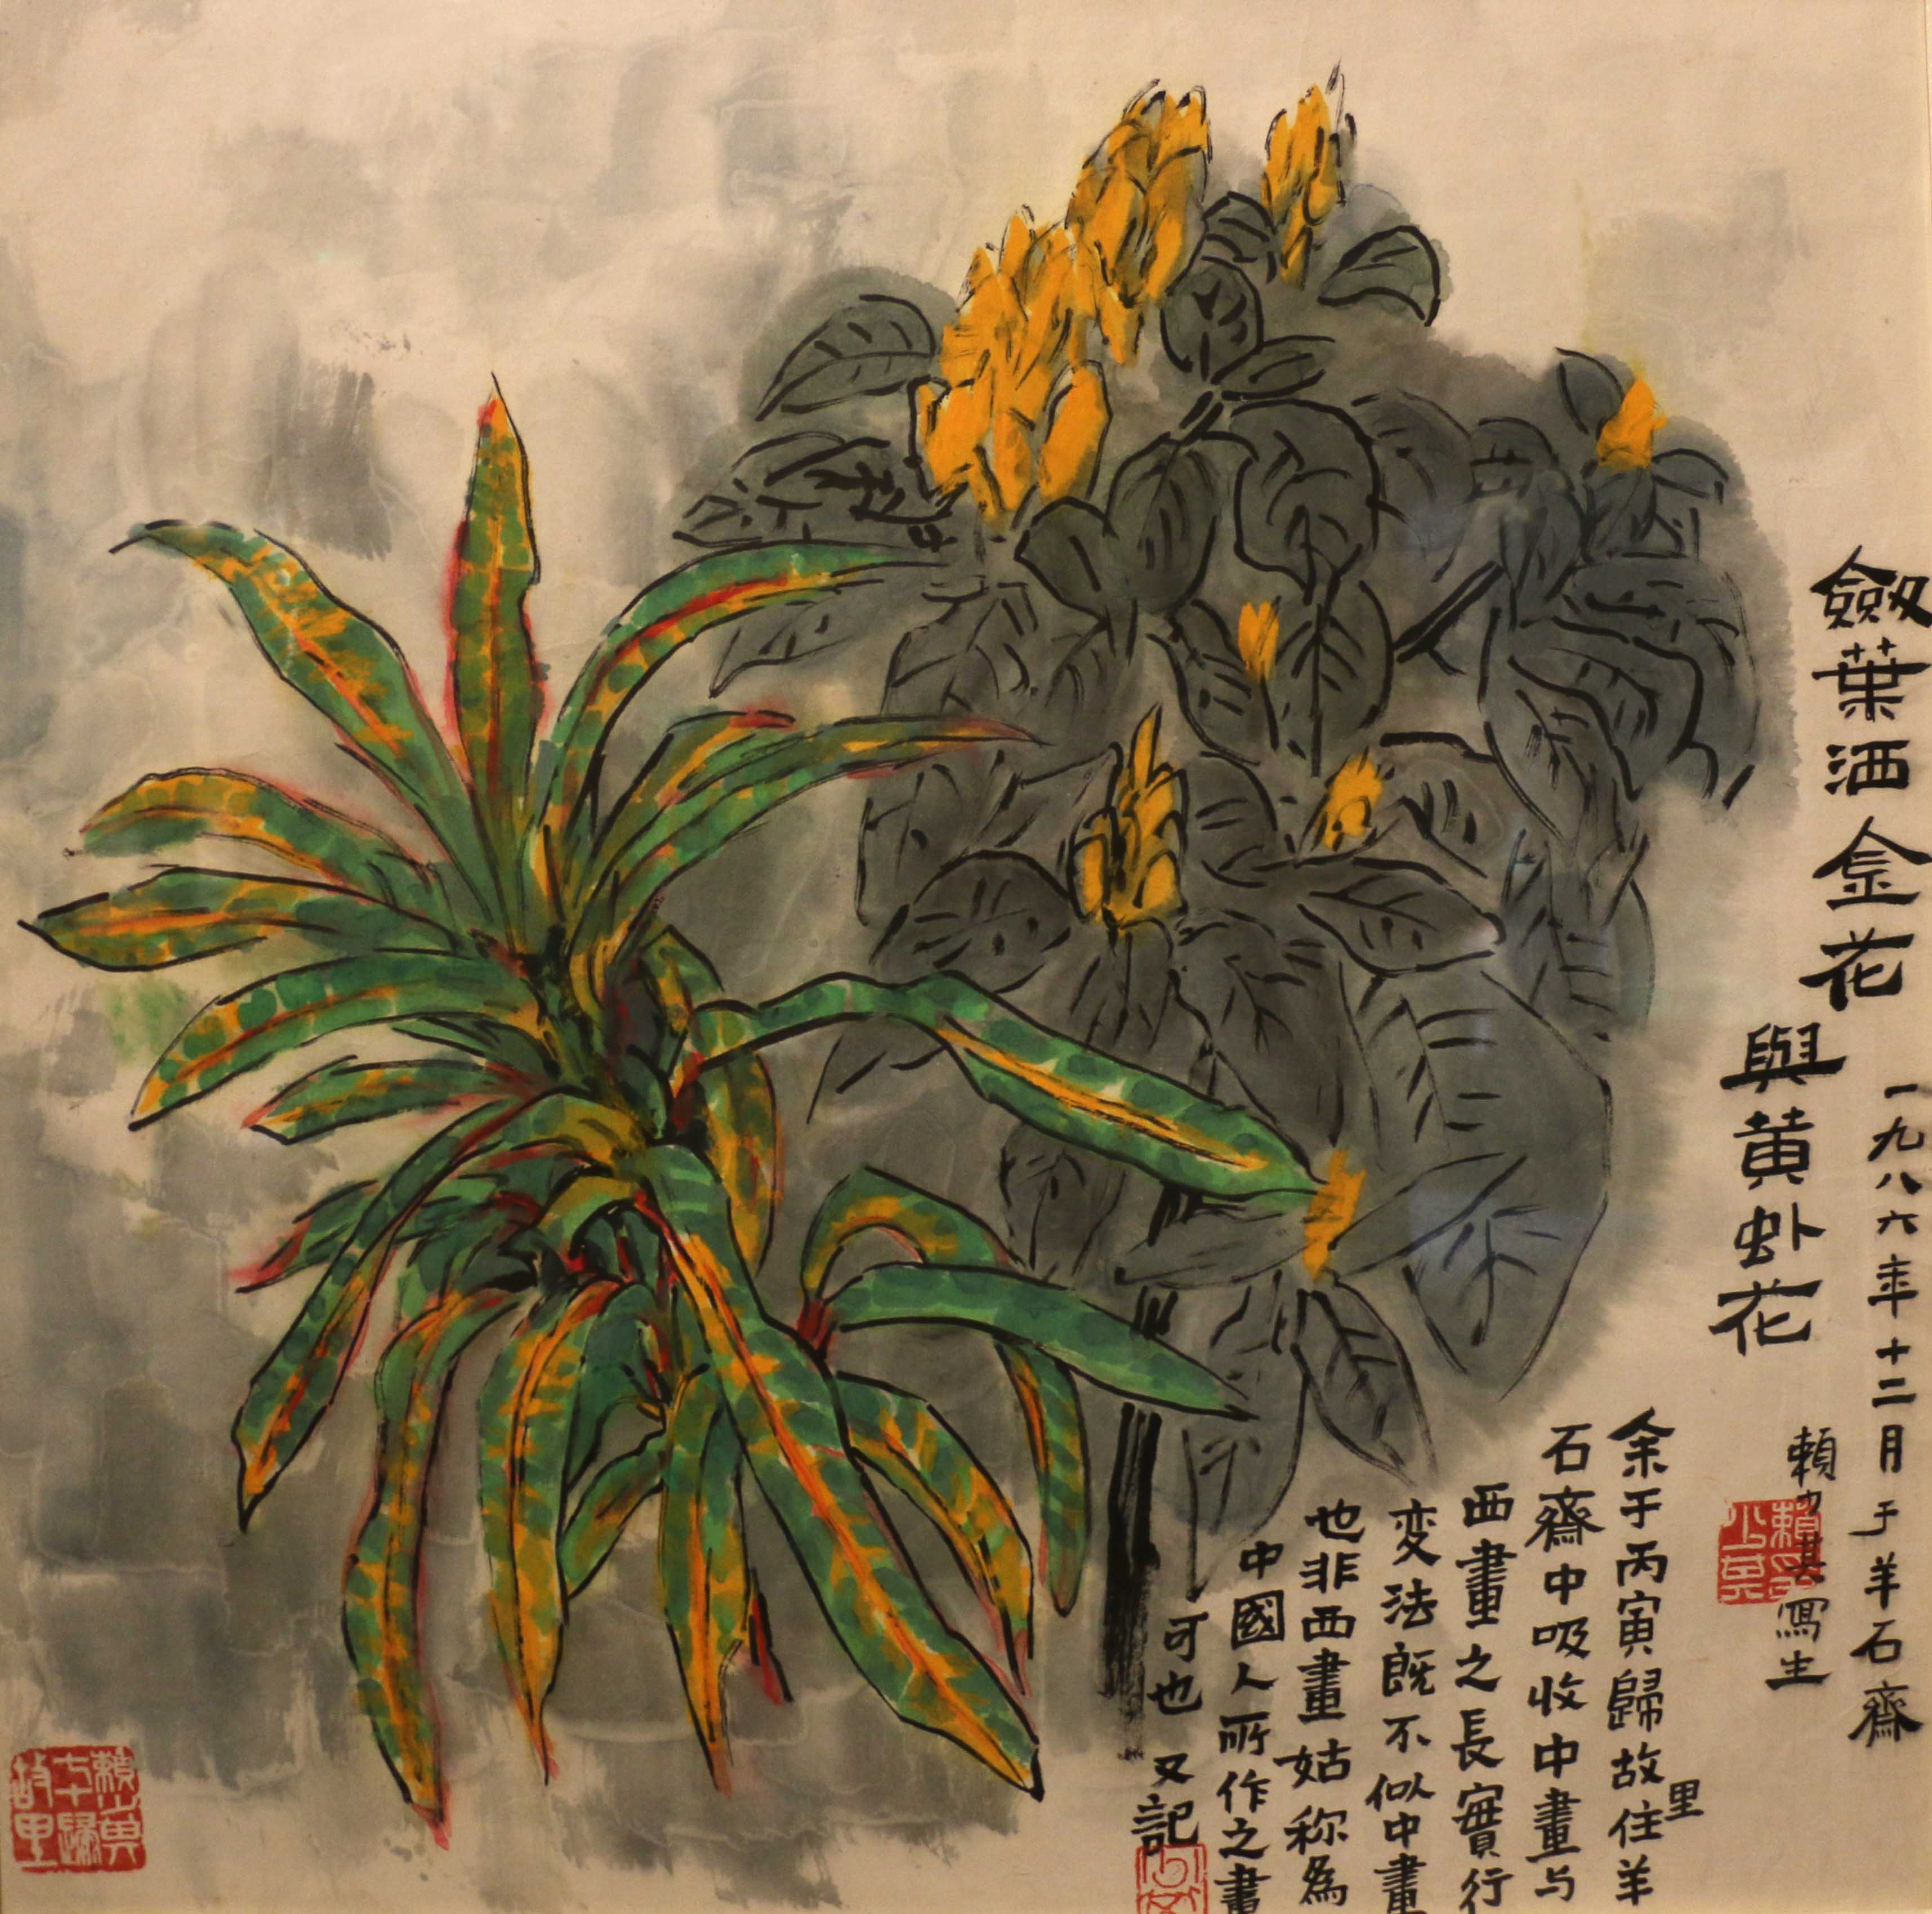 劔葉洒金花
與黄虾花
一九八六年十二月于羊石齋
賴少其寫生
余于丙寅歸故里住羊
石齋中吸收中畫与
西畫之長實行
变法既不似中畫
也非西畫姑称為
中國人所作之畫
可也又記
賴少其